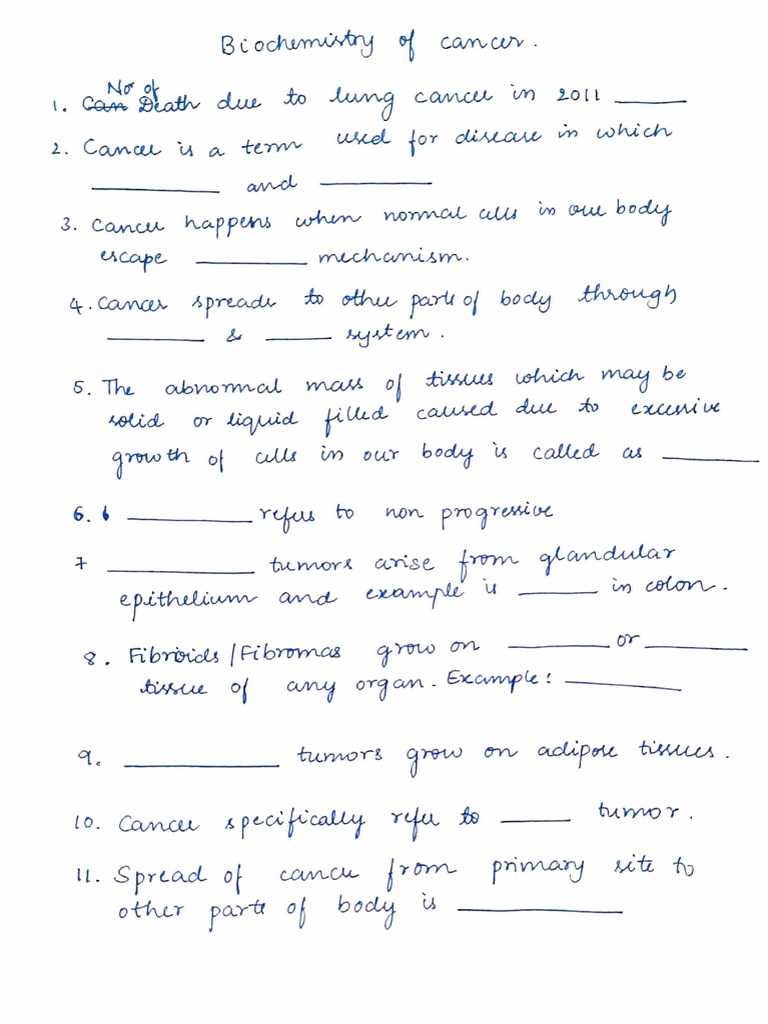 Biochemistry of cancer.
No of
1. Can Death due to lung cancer in 2011 ______
2. Cancer is a term used for disease in which
______ and ______
3. Cancer happens when normal cells in our body
escape ______ mechanism.
4. Cancer spreads to other parts of body through
______ & ______ system.
5. The abnormal mass of tissues which may be
solid or liquid filled caused due to excessive
growth of cells in our body is called as ______
6. 6 ______ refers to non progressive
7 ______ tumors arise from glandular
epithelium and example is ______ in colon.
8. Fibroids/Fibromas grow on ______ or ______
tissue of any organ. Example: ______
9. ______ tumors grow on adipose tissues.
10. Cancer specifically refer to ______ tumor.
11. Spread of cancer from primary site to
other parts of body is ______